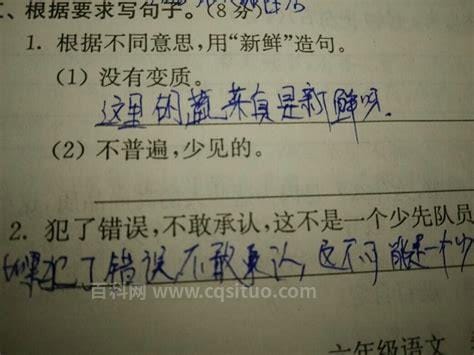 、根据要求写句子。(8分)
1. 根据不同意思,用“新鲜”造句。
(1) 没有变质。
这里的蔬菜真是新鲜呀.
(2) 不普遍,少见的。
2. 犯了错误,不敢承认,这不是一个少先队员
如果犯了错误,不敢承认,这不可能是一个少
百科网 www.cqsituo.com
六年级语文